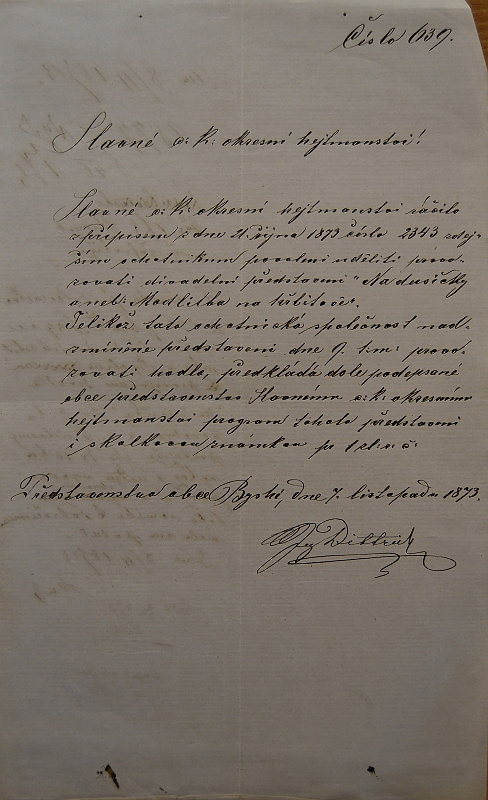 Číslo 639.
Slavné c: k: okresní hejtmanství!
Slavné c: k: okresní hejtmanství ráčilo
přípisem z dne 21. října 1873 číslo 2343 zdej-
ším ochotníkům povolení uděliti provo-
zovati divadelní představení "Na dušičky
aneb: Modlitba na hřbitově".
Jelikož tato ochotnická společnost nad-
zmíněné představení dne 9. t: m: provo-
zovati hodlá, předkládá dole podepsané
obce představenstvo slavnému c: k: okresnímu
hejtmanství program tohoto představení
i s kolkovou známkou pr 1 zl: r: č:
Představenstvo obce Bystré, dne 7. listopadu 1873.
Dittrich